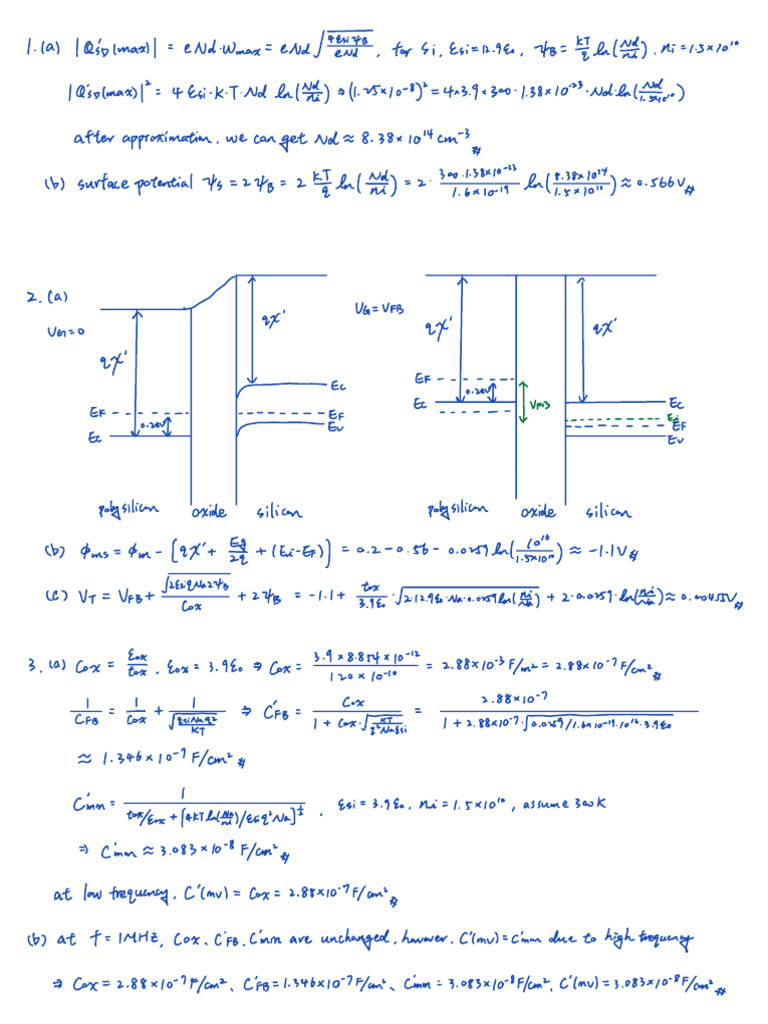 1.(a) |Q'sD(max)| = eNd·Wmax = eNd√(4εsiψB/eNd), for Si, εsi=12.9ε0, ψB = kT/q ln(Nd/ni), ni=1.5×10¹⁰
|Q'sD(max)|² = 4εsi·K·T·Nd ln(Nd/ni) ⇒ (1.25×10⁻⁸)² = 4×3.9×300·1.38×10⁻²³·Nd·ln(Nd/1.5×10¹⁰)
after approximation, we can get Nd ≈ 8.38×10¹⁴ cm⁻³ #
(b) surface potential ψs = 2ψB = 2 kT/q ln(Nd/ni) = 2· 300·1.38×10⁻²³/1.6×10⁻¹⁹ ln(8.38×10¹⁴/1.5×10¹⁰) ≈ 0.566V #
2.(a)
VG=0
qχ'
qχ'
Ec
EF
0.20V
EF
Ev
Ec
polysilicon oxide silicon
VG=VFB
qχ'
qχ'
EF
0.20V
Ec
VFB
Ec
Ei
EF
Ev
polysilicon oxide silicon
(b) ϕms = ϕm − [qχ' + Eg/2q + (Ei−EF)] = 0.2−0.56−0.0259 ln(10¹⁶/1.5×10¹⁰) ≈ −1.1V #
(c) VT = VFB + √(2εsiqNa2ψB)/Cox + 2ψB = −1.1 + tox/3.9ε0 · √(2·12.9ε0·Na·0.0259 ln(ni/Na)) + 2·0.0259·ln(ni/Na) ≈ 0.00455V #
3.(a) Cox = εox/tox, εox = 3.9ε0 ⇒ Cox = 3.9×8.854×10⁻¹²/120×10⁻¹⁰ = 2.88×10⁻³ F/m² = 2.88×10⁻⁷ F/cm² #
1/CFB = 1/Cox + 1/√(εsiNaq²/KT) ⇒ C'FB = Cox/(1+Cox·√(KT/q²Naεsi)) = 2.88×10⁻⁷/(1+2.88×10⁻⁷·√(0.0259/1.6×10⁻¹⁹·10¹⁶·3.9ε0))
≈ 1.346×10⁻⁷ F/cm² #
C'min = 1/(tox/εox + [4KT ln(Na/ni)/εsiq²Na]^½) , εsi=3.9ε0, ni=1.5×10¹⁰, assume 300K
⇒ C'min ≈ 3.083×10⁻⁸ F/cm² #
at low frequency, C'(inv) = Cox = 2.88×10⁻⁷ F/cm² #
(b) at f=1MHz, Cox, C'FB, C'min are unchanged, however, C'(inv)=C'min due to high frequency
⇒ Cox=2.88×10⁻⁷F/cm², C'FB=1.346×10⁻⁷F/cm², C'min=3.083×10⁻⁸F/cm², C'(inv)=3.083×10⁻⁸F/cm² #